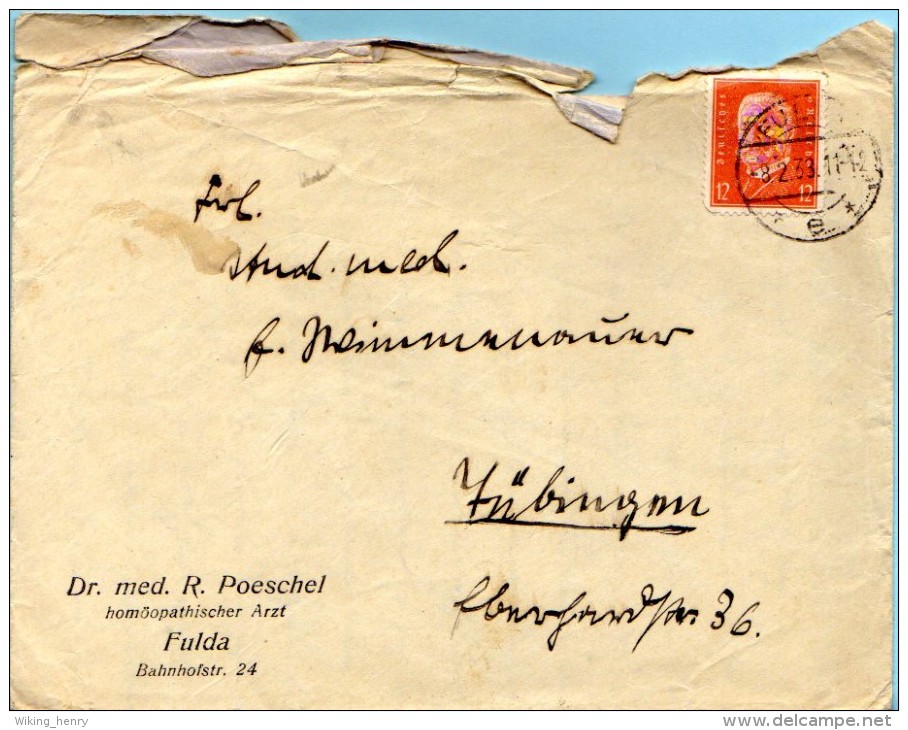 Deutsches Reich
12 12
8.2.33.11-12
Frl.
stud. med.
E. Wimmenauer
Tübingen
Eberhardstr. 36.
Dr. med. R. Poeschel
homöopathischer Arzt
Fulda
Bahnhofstr. 24
Wiking_henry
www.delcampe.net